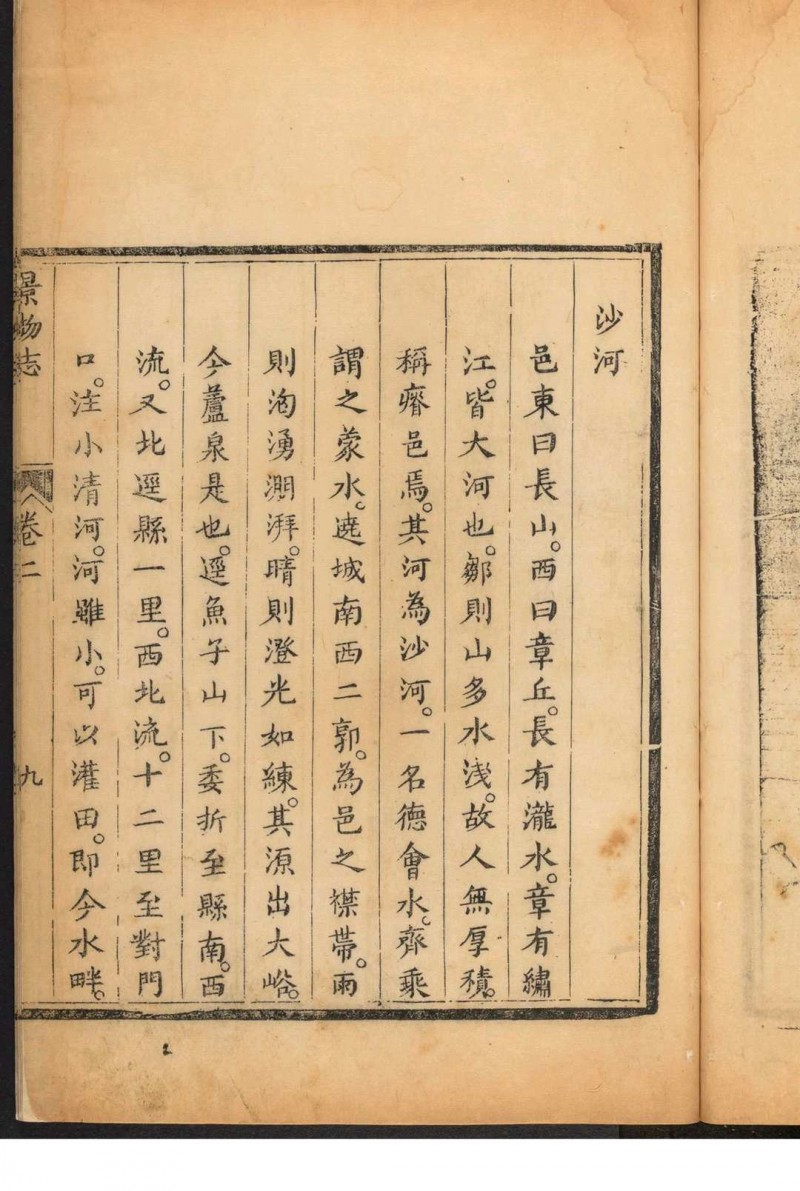 沙河
邑東曰長山。西曰章丘。長有瀧水。章有繡
江。皆大河也。鄒則山多水浅。故人無厚積。
稱瘠邑焉。其河為沙河。一名德會水。齊乘
謂之蒙水。遶城南西二郭。為邑之襟帶。雨
則洶湧澎湃。晴則澄光如練。其源出大峪。
今蘆泉是也。逕魚子山下。委折至縣南。西
流。又北逕縣一里。西北流。十二里至對門
口。注小清河。河雖小。可以灌田。即今水畔。
景物志 卷二 九